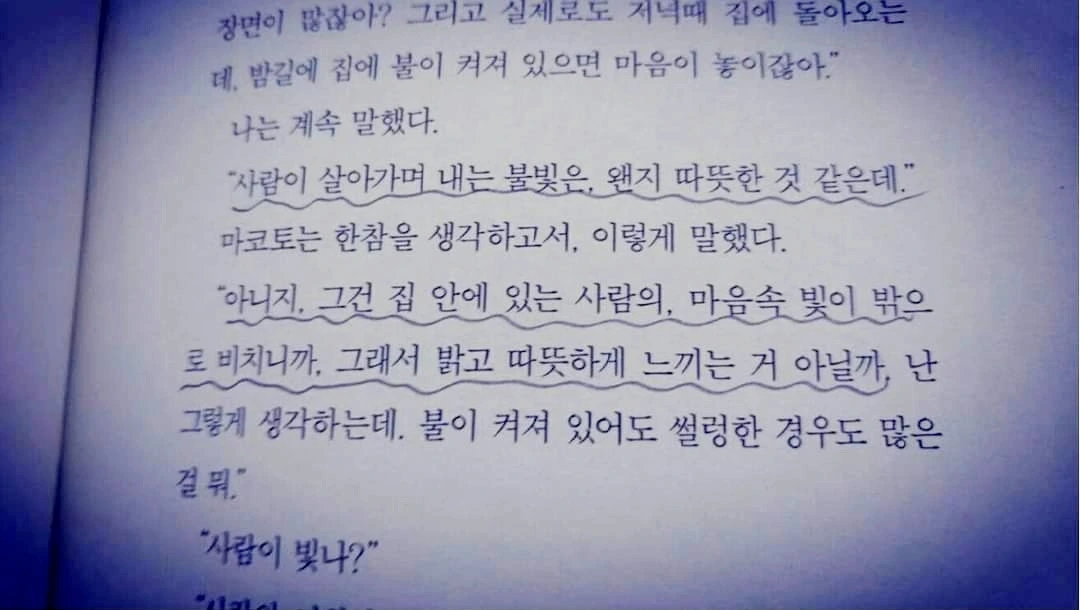 장면이 많잖아? 그리고 실제로도 저녁때 집에 돌아오는
데, 밤길에 집에 불이 켜져 있으면 마음이 놓이잖아."
나는 계속 말했다.
"사람이 살아가며 내는 불빛은, 왠지 따뜻한 것 같은데."
마코토는 한참을 생각하고서, 이렇게 말했다.
"아니지, 그건 집 안에 있는 사람의, 마음속 빛이 밖으
로 비치니까, 그래서 밝고 따뜻하게 느끼는 거 아닐까, 난
그렇게 생각하는데. 불이 켜져 있어도 썰렁한 경우도 많은
걸 뭐."
"사람이 빛나?"